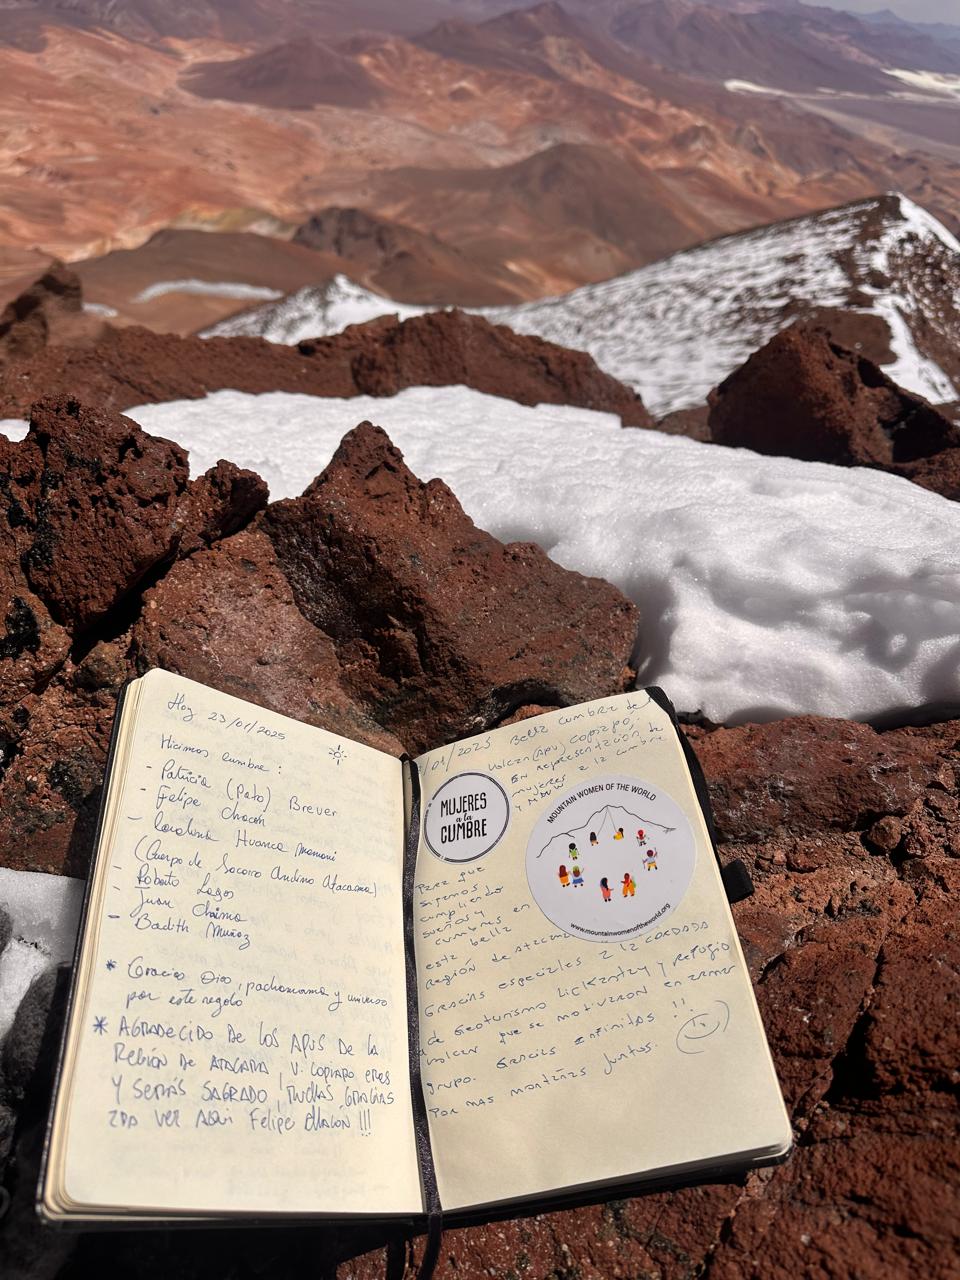 Hoy 23/01/2025
Hicimos cumbre:
- Patricia (Pato) Brever
- Felipe Chacón
- Carolina Huanca Mamani
(Cuerpo de Socorro Andino Atacama)
- Roberto Lagos
- Juan
- Badith Muñoz
* Gracias Dios, pachamama y universo
por este regalo
* AGRADECIDO DE LOS APUS DE LA
REGIÓN DE ATACAMA, V. COPIAPO ERES
Y SERÁS SAGRADO, MUCHAS GRACIAS
2DA VEZ AQUI FELIPE CHACÓN!!!
/01/2025 Bella cumbre del
Volcan (Apu) Copiapo.
EN REPRESENTACIÓN de
mujeres a la cumbre
y MWW
MUJERES
a la
CUMBRE
MOUNTAIN WOMEN OF THE WORLD
www.mountainwomenoftheworld.org
Para que
sigamos
cumpliendo
sueños y
cumbres en
esta bella
región de atacama
Gracias especiales a la cordada
de Geoturismo Lickantay y Refugio
que se motivaron en armar
grupo. Gracias infinitas!!
Por mas montañas juntos.